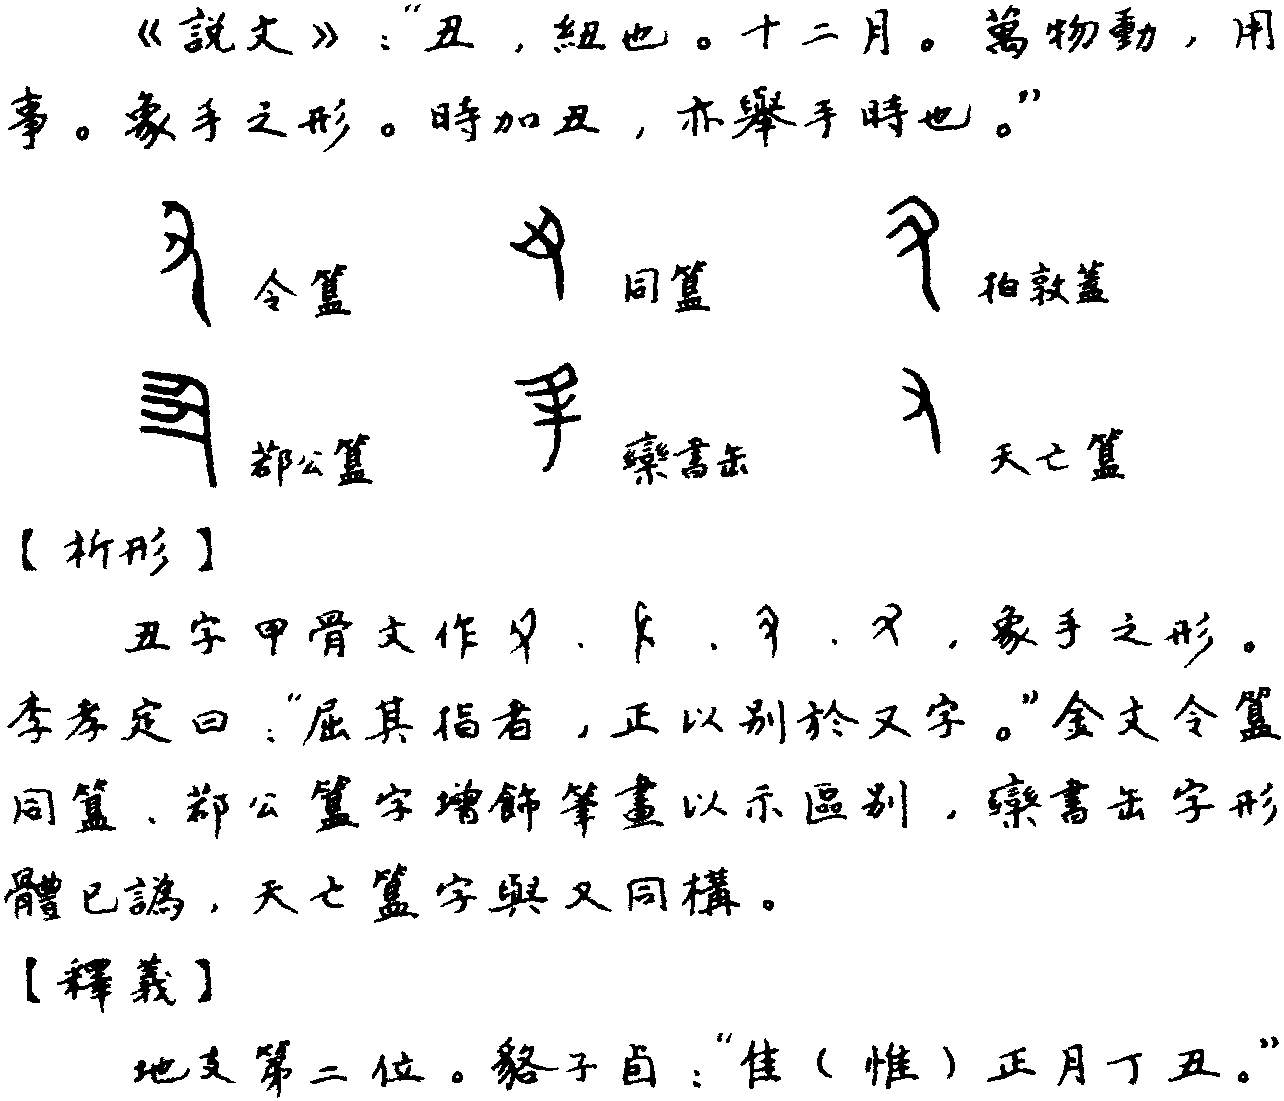 《説文》：“丑，紐也。十二月。萬物動，用
事。象手之形。時加丑，亦舉手時也。”
令簋 同簋 拍敦蓋
鄀公簋 欒書缶 天亡簋
【析形】
丑字甲骨文作、、、，象手之形。
李孝定曰：“屈其指者，正以别於又字。”金文令簋
同簋、鄀公簋字增飾筆畫以示區别，欒書缶字形
體已譌，天亡簋字與又同構。
【釋義】
地支第二位。貉子卣：“隹（惟）正月丁丑。”